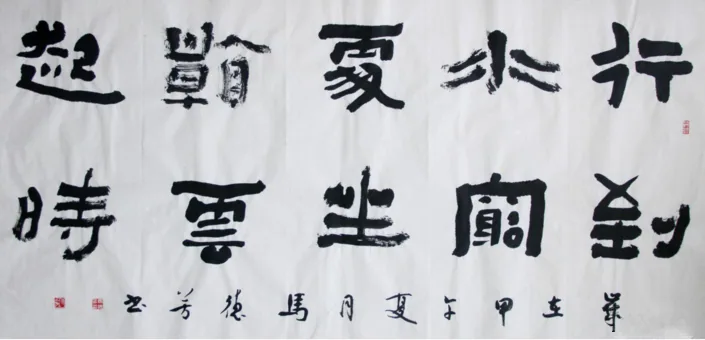 行到
水窮
處坐
看雲
起時
歲在甲午夏月馬德芳书